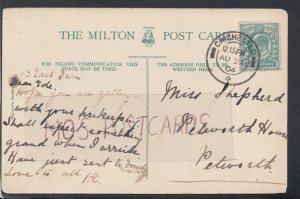 THE MILTON POST CARD
FOR INLAND COMMUNICATION THIS
SPACE MAY BE USED.
THE ADDRESS ONLY TO BE
WRITTEN HERE.
CHICHESTER
12.15 PM
AU 2
04
13 East Row
Dear
Hope you are getting
with your
Shall expect something
grand when I arrive
Have just sent to
Love to all
Miss Shepherd
Petworth House
Petworth
POSTCARDS